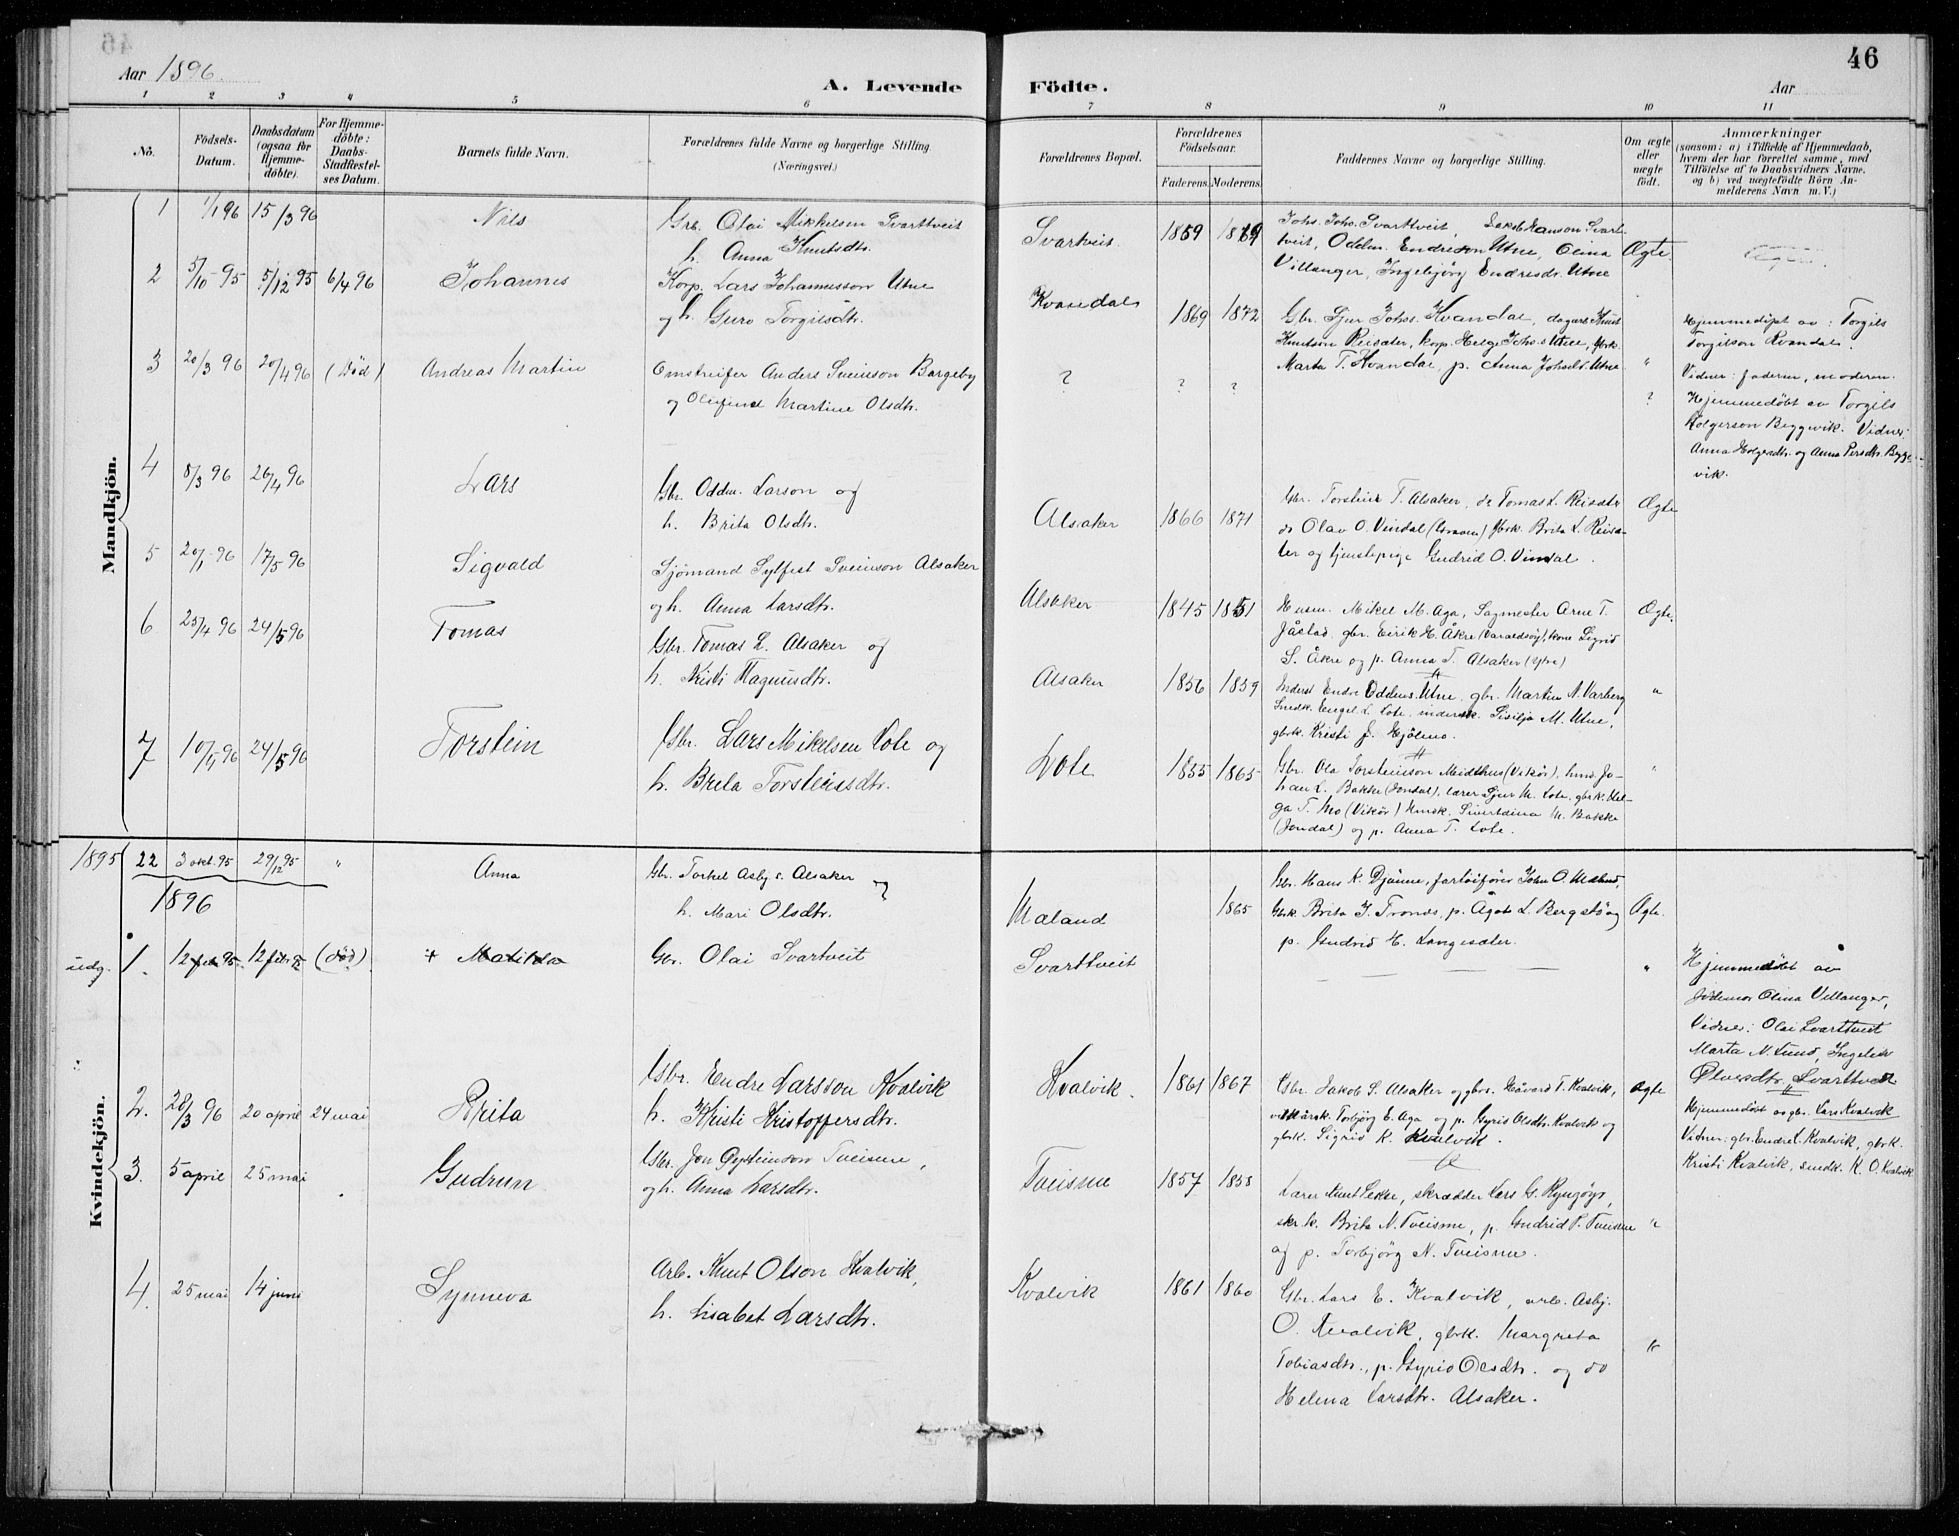 46
Aar 1896.
A. Levende Födte.
Aar
1 2 3 4 5 6 7 8 9 10 11
No.
Födsels-Datum.
Daabsdatum (ogsaa for Hjemmedöbte).
For Hjemmedöbte: Daabs-Stadfæstelses Datum.
Barnets fulde Navn.
Forældrenes fulde Navne og borgerlige Stilling. (Næringsvei.)
Forældrenes Bopæl.
Forældrenes Födselsaar.
Faderens. Moderens.
Faddernes Navne og borgerlige Stilling.
Om ægte eller uægte födt.
Anmærkninger
(saasom: a) i Tilfælde af Hjemmedaab,
hvem der har forrettet samme, med
Tilföielse af to Daabsvidners Navne,
og b) ved uægtefödte Börn An-
melderens Navn m. V.)
Mandkjön.
1 1/1 96 15/3 96 Nils
Grb. Olai Mikkelsen Svarttveit
h. Anna Knutsdtr.
Svartveit 1859 1869
Johs. Johs. Svarttveit, Jakob Hanson Svart-
tveit, Oddm. Endreson Utne, Olina
Villanger, Ingebjörg Endresdr. Utne
Ægte.
2 5/10 95 5/12 95 6/4 96 Johannes
Korp. Lars Johannesson Utne
og h. Guro Torgilsdtr.
Kvandal 1869 1872
Gbr. Sjur Johs. Kvandal, dagarb. Knut
Knutson Reisæter, korp. Helge Johs. Utne, gbrk.
Marta T. Kvandal, p. Anna Johsdt. Utne
"
Hjemmedöpt av: Torgils
Torgilson Kvandal.
Vidner: faderen, moderen.
3 20/3 96 20/4 96 (Död) Andreas Martin
Omstreifer Anders Sveinson Bargeby
og Olufine Martine Olsdtr.
? ? ? ?
Hjemmedöbt av Torgils
Holgerson Beggevik. Vidner:
Anna Holgersdtr. og Anna Persdtr. Bygge-
vik.
4 8/3 96 26/4 96 Lars
Gbr. Oddm. Larson og
h. Brita Olsdtr.
Alsaker 1866 1871
Gbr. Torstein T. Alsaker, do Tomas L. Reisæter
do Olav O. Vindal (Graven) gbrk. Brita L. Reisæ-
ter og tjenstepige Gudrid O. Vindal.
Ægte
5 20/1 96 17/5 96 Sigvald
Sjömand Sylfest Sveinson Alsaker
og h. Anna Larsdtr.
Alsaker 1845 1851
Husm. Mikel M. Aga, Sagmester Arne T.
Jåstad, gbr. Eirik H. Åkre (Varaldsöy), kone Sigrid
S. Åkre og p. Anna T. Alsaker (ytre)
Ægte.
6 25/4 96 24/5 96 Tomas
Gbr. Tomas L. Alsaker og
h. Kristi Haquinsdtr.
Alsaker 1856 1859
Inderst Endre Oddens. Utne, gbr. Martin N. Varberg
Smedk. Engel L. Lote, indersk. Sisilja M. Utne,
gbrk. Kristi J. Hjölmo.
"
7 10/5 96 24/5 96 Torstein
Gbr. Lars Mikelsen Lote og
h. Brita Torsteinsdtr.
Lote 1855 1865
Gbr. Ola Torsteinson Midthus (Vikör), hmd. Jo-
han L. Bakke (Jondal), lærer Sjur M. Lote, gbrk. Hel-
ga T. Mo (Vikör) hmsk. Sivertina M. Bakke
(Jondal) og p. Anna T. Lote.
"
Kvindekjön.
1895 22 3 okt. 95 29/12 95 " Anna
Gbr. Torkel Asbj s. Alsaker og
h. Mari Olsdtr.
Maland 1865
Gbr. Hans K. Djönne, fartöiförer John O. Maland,
Gbrk. Brita J. Tronas, p. Ågot L. Bergstö og
p. Gudrid H. Langesæter.
Ægte.
1896
udg. 1. 12 feb. 95 12 febr. 95 (död) + Matilda
Gbr. Olai Svartveit
Svarttveit
"
Hjemmedöbt av
Jordemor Olina Villanger,
Vidner: Olai Svarttveit
Marta N. Lund, Ingeleiv
Olversdtr. Svarttveit
2. 28/3 96 20 april 24 mai Brita
Gbr. Endre Larsson Kvalvik
h. Kristi Kristoffersdtr.
Kvalvik. 1861 1867
Gbr. Jakob S. Alsaker og gbr. Håvard T. Kvalvik,
Torbjörg E. Aga og p. Gyrid Olsdtr. Kvalvik og
gbrk. Sigrid K. Kvalvik.
Ægte
Hjemmedöbt av gbr. Lars Kvalvik
Vidner: gbr. Endre L. Kvalvik, gbrk.
Kristi Kvalvik, smedk. K. O. Kvalvik
3. 5 april 25 mai Gudrun
Gbr. Jon Öysteinson Tveisme,
og h. Anna Larsdtr.
Tveisme 1857 1858
Lærer Knut Lekve, skrædder Lars G. Rynzöyr,
skr. k. Brita N. Tveisme, p. Gudrid T. Tveisme
og p. Torbjörg N. Tveisme.
"
4. 25 mai 14 juni Synneva
Arb. Knut Olson Kvalvik,
h. Lisabet Larsdtr.
Kvalvik 1861 1860
Gbr. Lars E. Kvalvik, arb. Asbj.
O. Kvalvik, gbrk. Margreta
Tobiasdtr., p. Gyrid Olsdtr. og do
Helena Larsdtr. Alsaker.
"